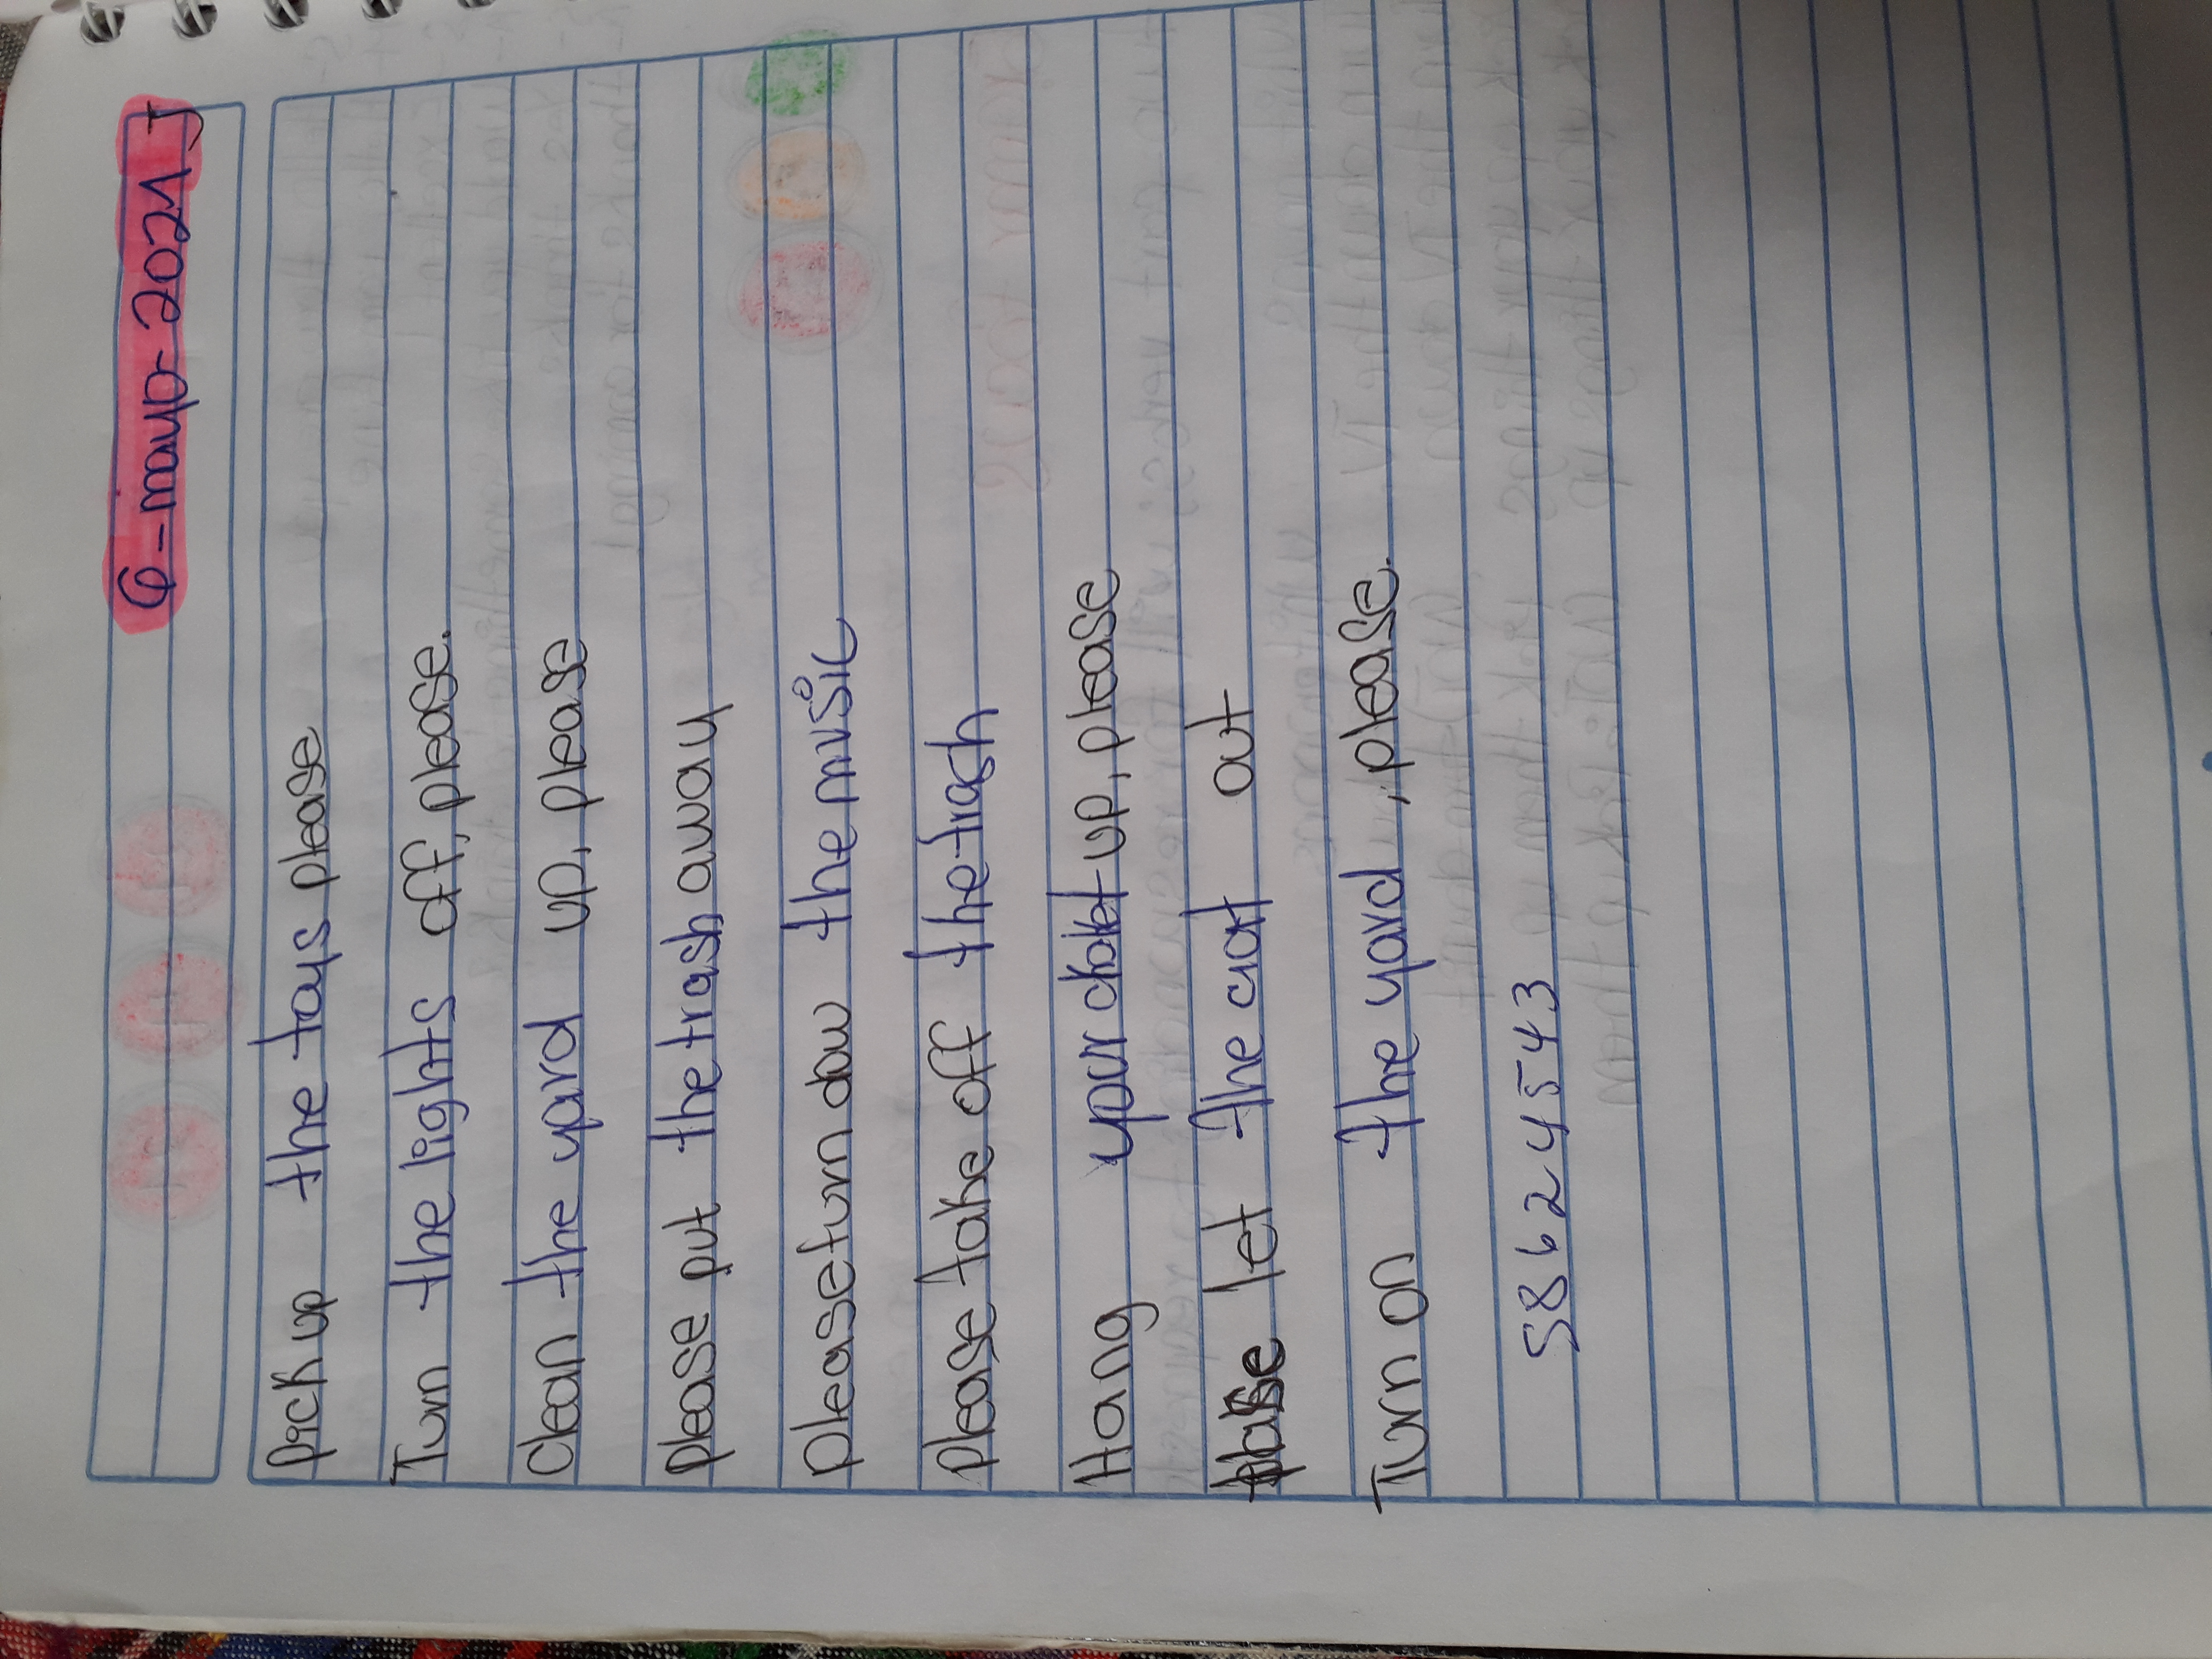 6-mayo-2021 J
pick up the toys please
Turn the lights off, please.
Clean the yard up, please
please put the trash away
please turn dow the music
please take off the trash
Hang your up, please
please let the cat out
Turn on the yard, please.
5862454543